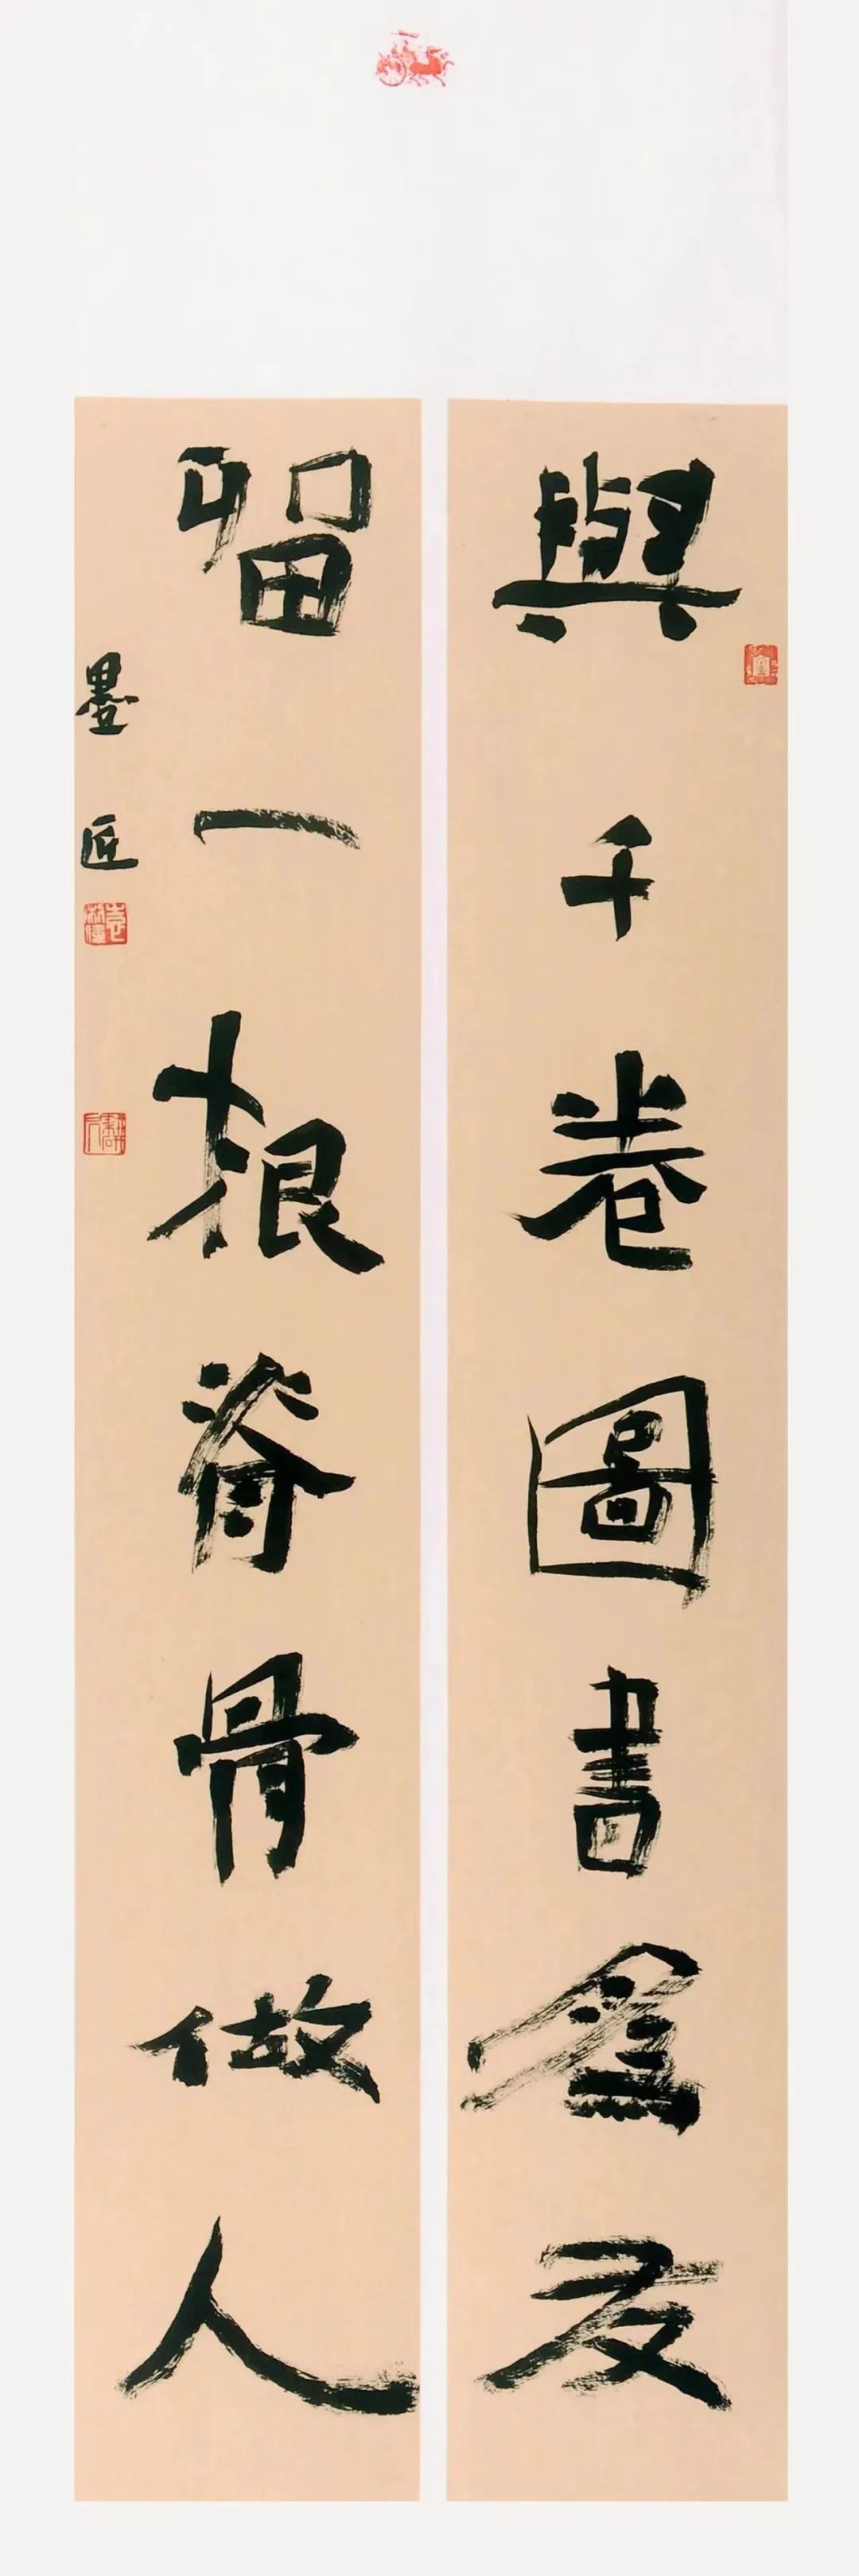 與千卷圖書為友
留一根脊骨做人
墨匠